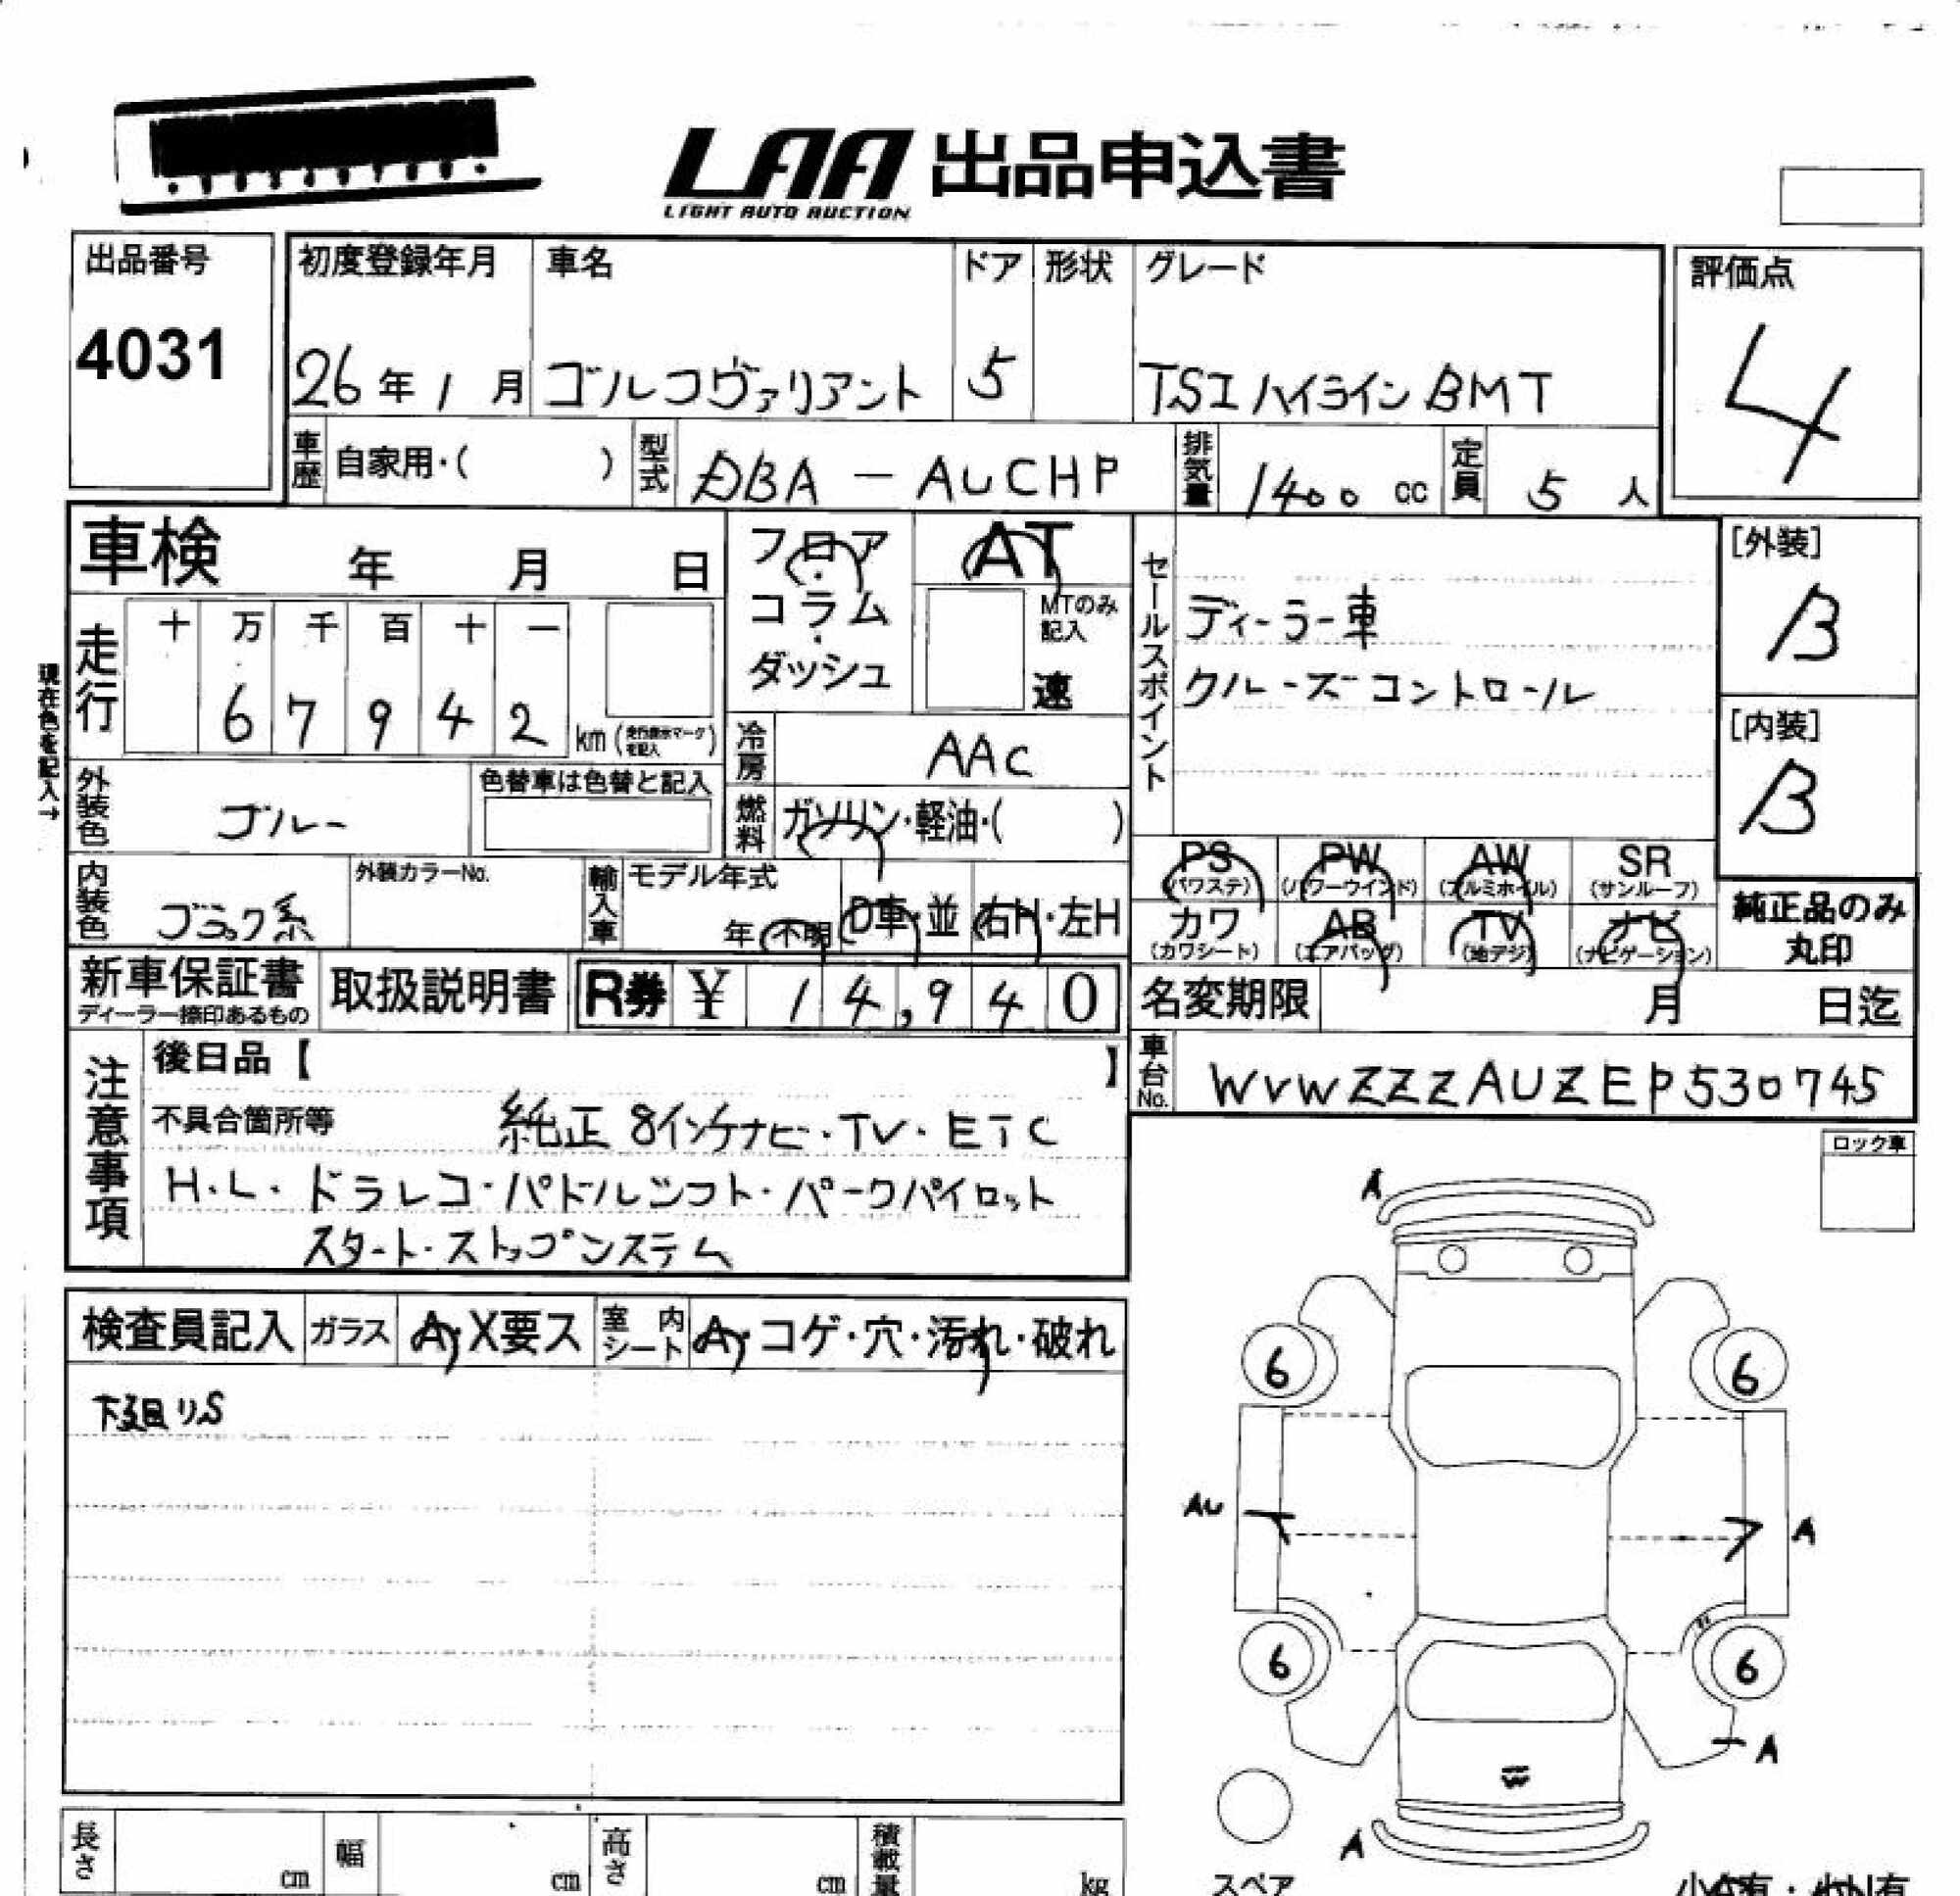 LAA 出品申込書
LIGHT AUTO AUCTION
出品番号
4031
初度登録年月 車名 ドア 形状 グレード
26年1月 ゴルフヴァリアント 5 TSIハイラインBMT
評価点
4
車歴 自家用・( ) 型式 DBA-AUCHP 排気量 1400cc 定員 5人
車検 年 月 日
フロア・コラム・ダッシュ
AT
MTのみ記入
速
セールスポイント
ディーラー車
クルーズコントロール
[外装]
B
[内装]
B
現在色を記入→
走行 十 万 千 百 十 一
6 7 9 4 2 km
冷房 AAC
外装色 ブルー
色替車は色替と記入
燃料 ガソリン・軽油・( )
内装色 ブラック系
外装カラーNo.
輸入車 モデル年式
年・不明 D車・並 右H・左H
PS (パワステ) PW (パワーウインド) AW (アルミホイル) SR (サンルーフ)
カワ (カワシート) AB (エアバッグ) TV (地デジ) ナビ (ナビゲーション)
純正品のみ丸印
新車保証書
ディーラー捺印あるもの
取扱説明書
R券 ¥ 14,940
名変期限 月 日迄
車台No. WVWZZZAUZEP530745
注意事項
後日品【 】
不具合箇所等 純正8インチナビ・TV・ETC
H.L.ドラレコ・パドルシフト・パークパイロット
スタート・ストップシステム
ロック車
検査員記入 ガラス A・X要ス 室内シート A・コゲ・穴・汚れ・破れ
下廻りS
A
6 6
AU A
6 6
A
A
スペア
長さ cm 幅 cm 高さ cm 積載量 kg